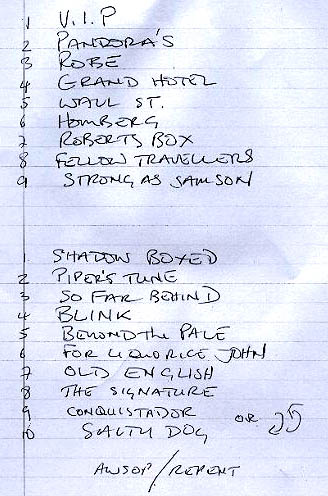 1 V.I.P
2 PANDORA'S
3 ROBE
4 GRAND HOTEL
5 WALL ST.
6 HOMBERG
7 ROBERTS BOX
8 FELLOW TRAVELLERS
9 STRONG AS SAMSON
1 SHADOW BOXED
2 PIPER'S TUNE
3 SO FAR BEHIND
4 BLINK
5 BEYOND the PALE
6 FOR LIQUORICE JOHN
7 OLD ENGLISH
8 THE SIGNATURE
9 CONQUISTADOR
10 SALTY DOG OR 25
AWSOP/REPENT